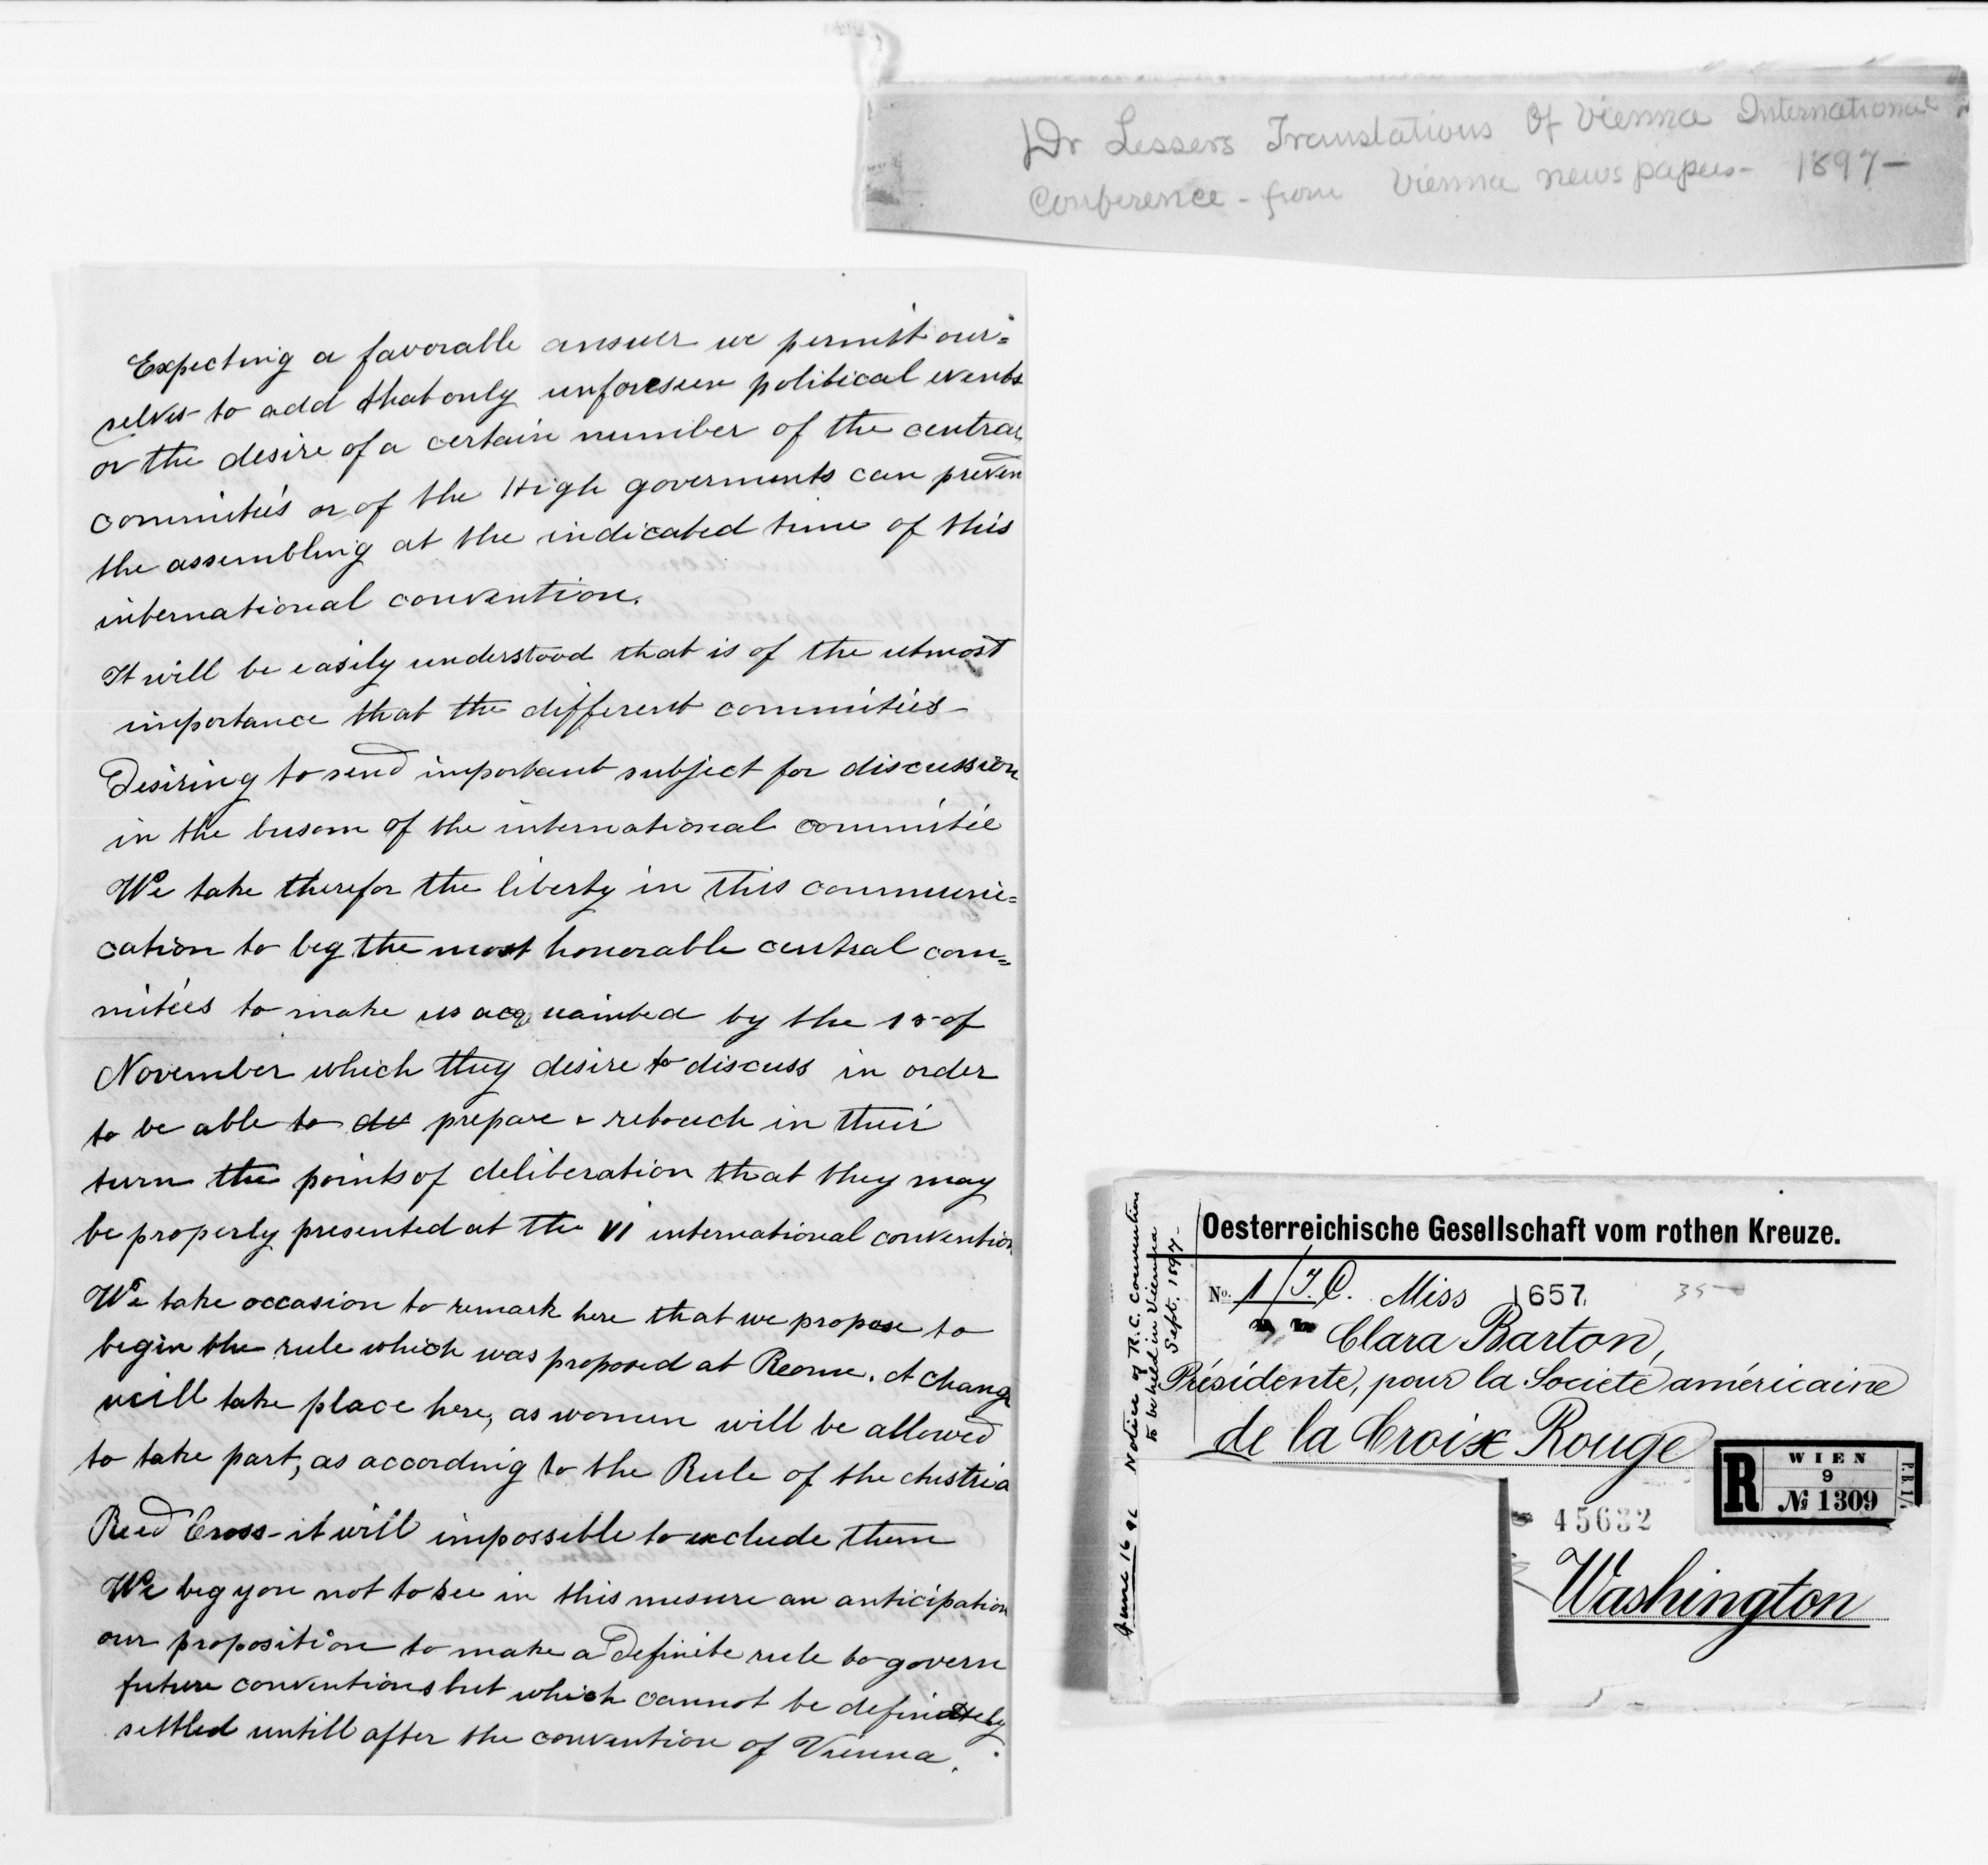 Dr Lessers Translations Of Vienna International
Conference - from Vienna newspapers - 1897 -
Expecting a favorable answer we permit our=
selves to add that only unforeseen political events
or the desire of a certain number of the central
commitiés or of the High goverments can preven
the assembling at the indicated time of this
international convention.
It will be easily understood that is of the utmost
importance that the different commitiés -
Desiring to send important subject for discussion
in the busom of the international commitée
We take therefor the liberty in this communi=
cation to beg the most honorable central com=
mitées to make us acquainted by the 15 of
November which they desire to discuss in order
to be able to prepare & retouch in their
turn the points of deliberation that they may
be properly presented at the VI international convention
We take occasion to remark here that we propose to
begin the rule which was proposed at Reome. A change
will take place here, as women will be allowed
to take part, as according to the Rule of the Austria
Reed Cross - it will impossible to exclude them
We beg you not to see in this mesure an anticipation
our proposition to make a definite rule to govern
future conventions but which cannot be definitely
settled untill after the convention of Vienna.
June 16 96 Notice of R.C. Convention
to be held in Vienna
Sept. 1897 -
Oesterreichische Gesellschaft vom rothen Kreuze.
No. 1/I.C. Miss 1657 35
Clara Barton,
Présidente, pour la Societé américaine
de la Croix Rouge
R WIEN
9
No 1309
45632
Washington